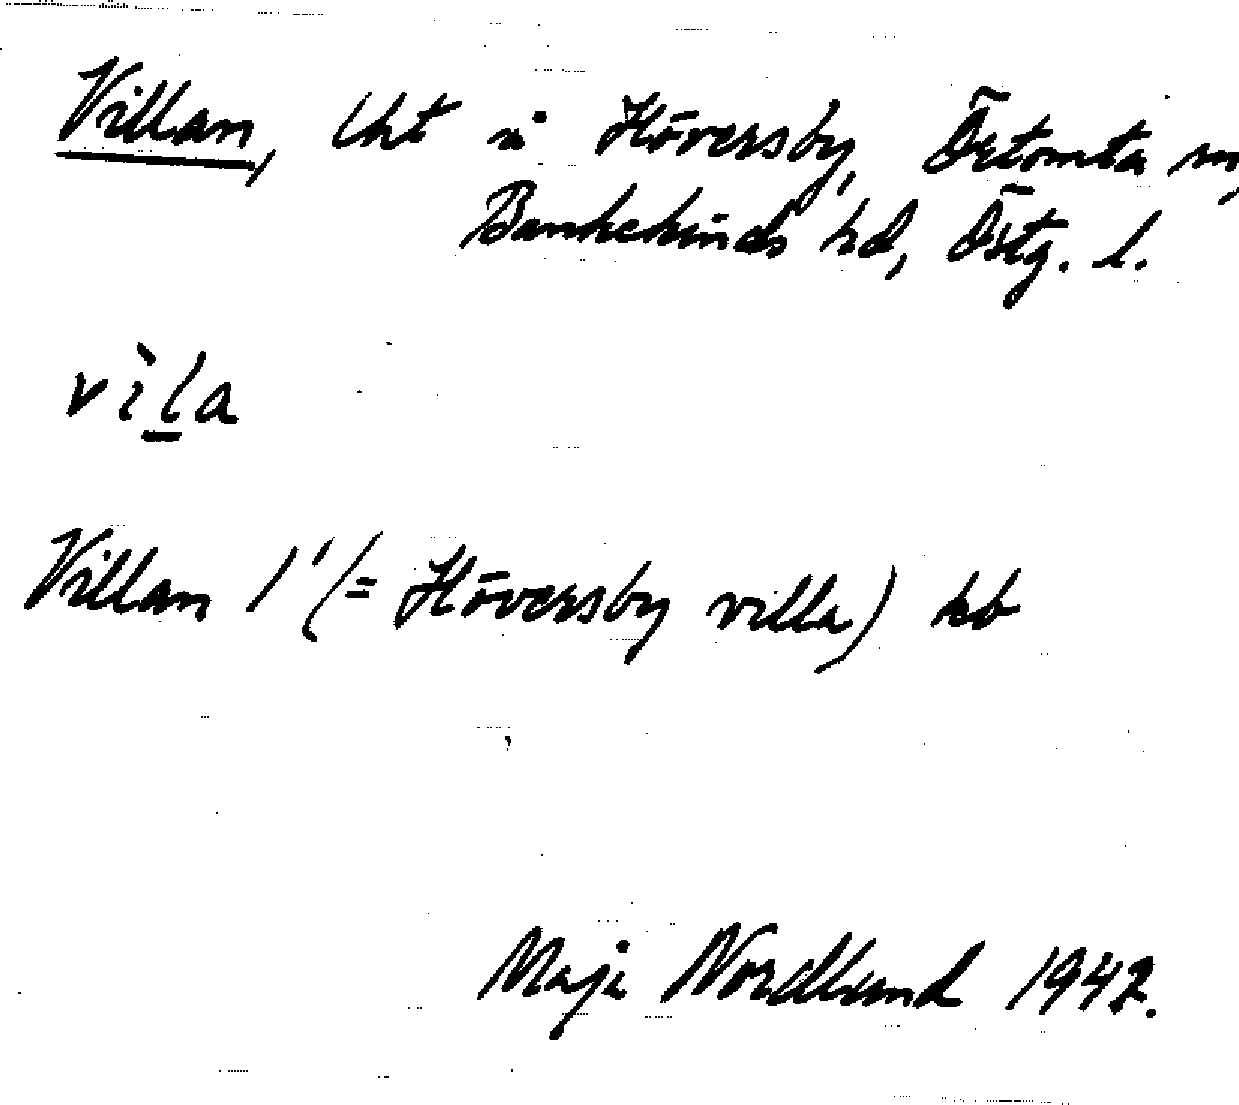 Villan, lht å Höversby, Örtomta sn,
Bankekinds hd, Östg. l.
vìla
Villan 1' (= Höversby villa) kb
Maja Nordlund 1942.